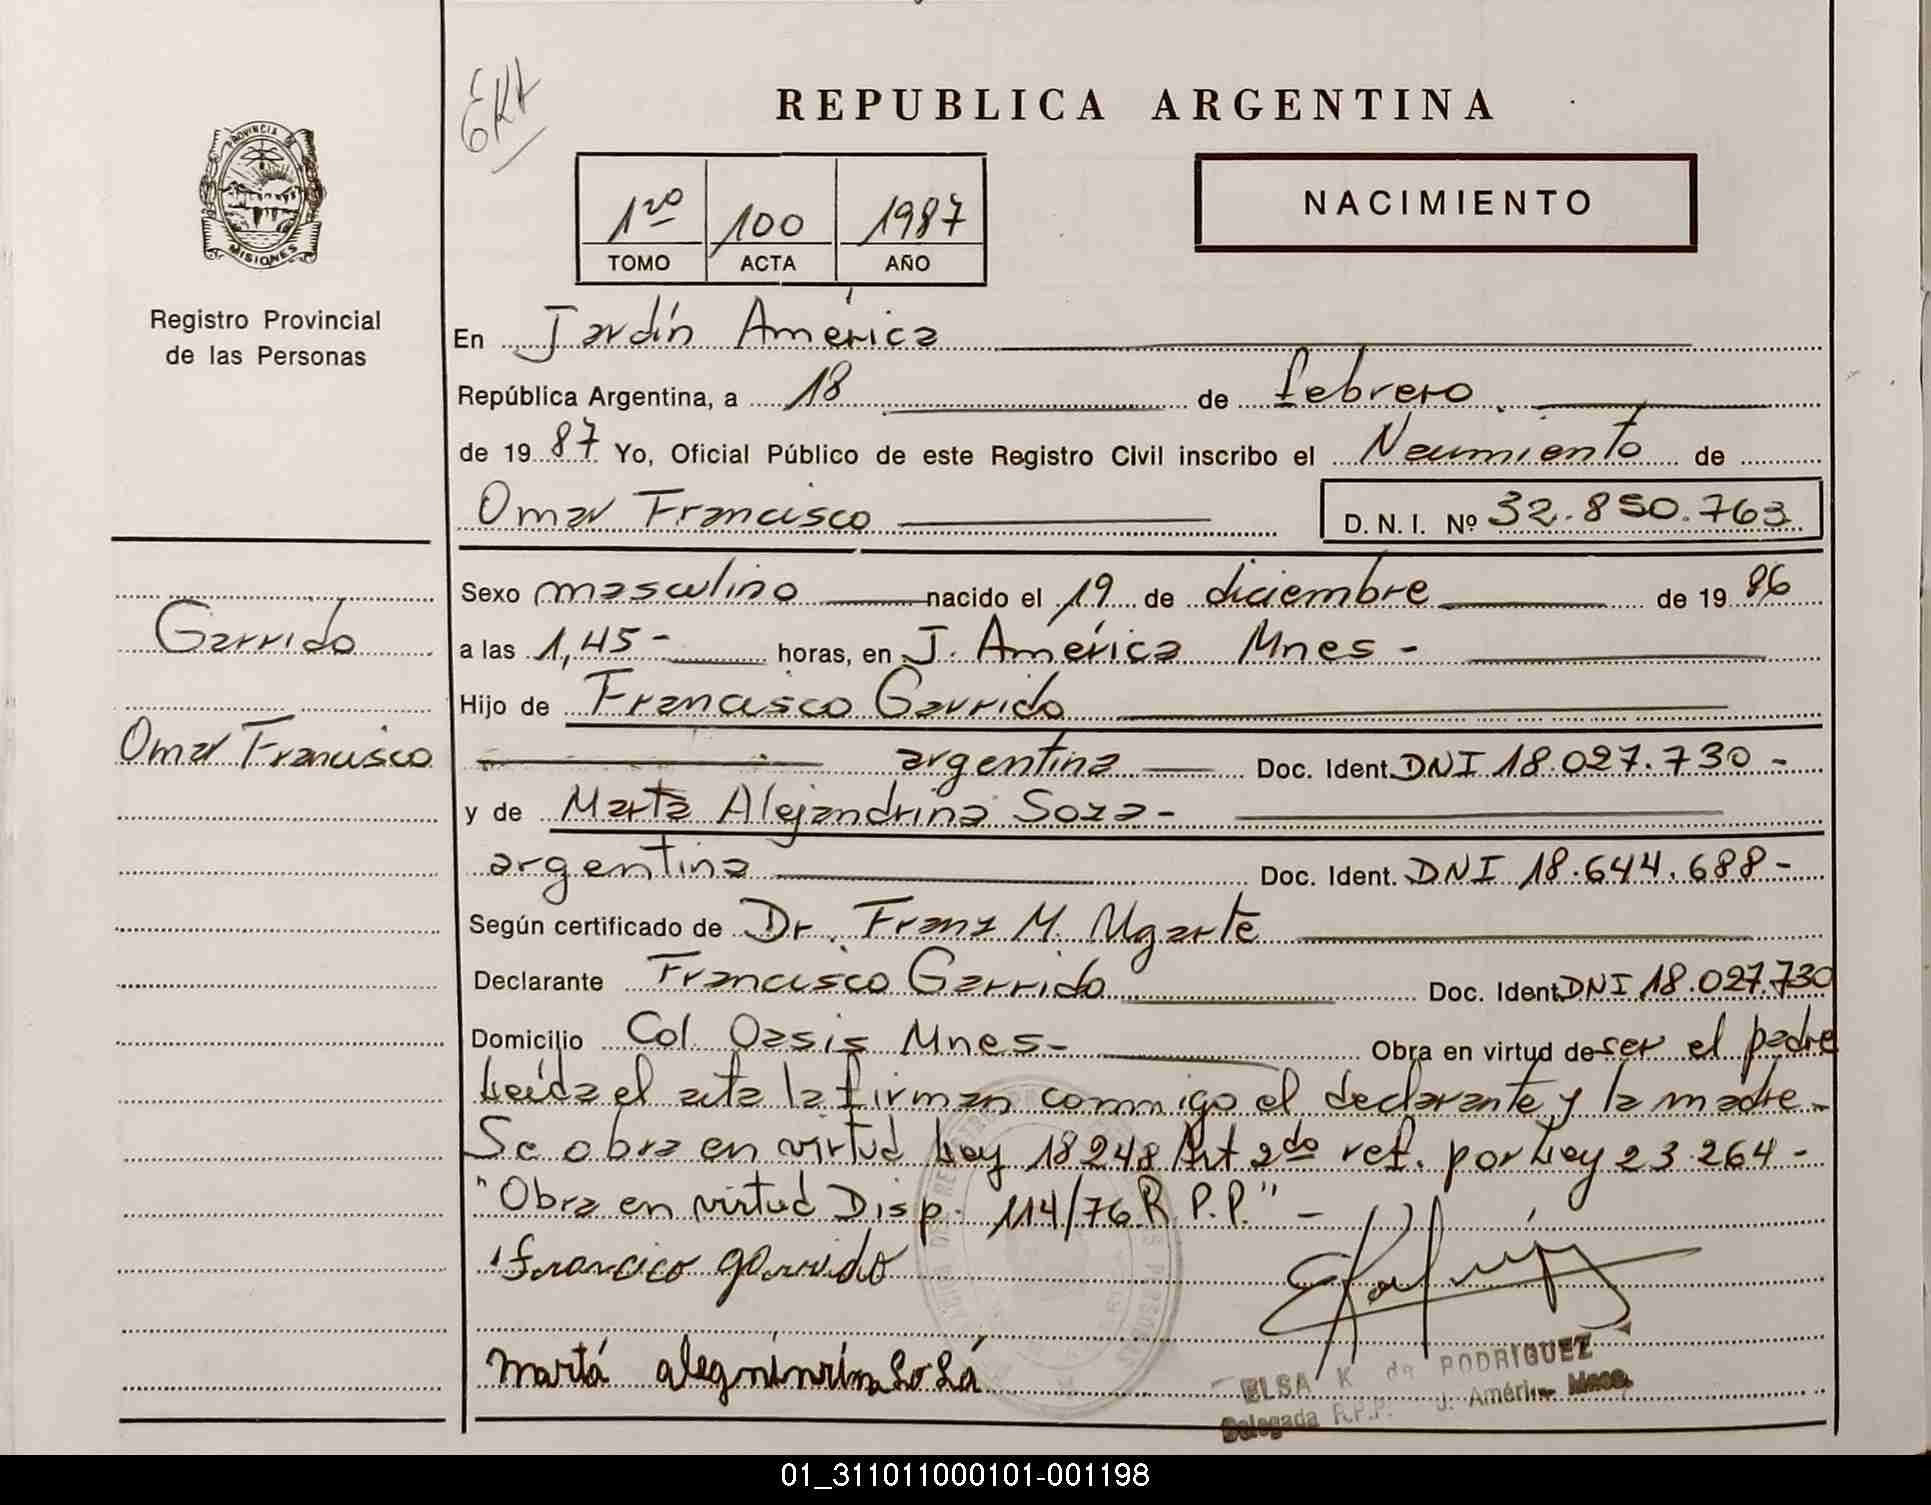 EKA
REPUBLICA ARGENTINA
PROVINCIA DE
MISIONES
1ro 100 1987
TOMO ACTA AÑO
NACIMIENTO
Registro Provincial
de las Personas
En Jardín América
República Argentina, a 18 de febrero
de 1987 Yo, Oficial Público de este Registro Civil inscribo el Nacimiento de
Omar Francisco D. N. I. Nº 32.850.763
Garrido
Omar Francisco
Sexo masculino nacido el 19 de diciembre de 1986
a las 1,45- horas, en J. América Mnes -
Hijo de Francisco Garrido
argentina Doc. Ident. DNI 18.027.730 -
y de Marta Alejandrina Soza -
argentina Doc. Ident. DNI 18.644.688 -
Según certificado de Dr. Franz M. Ugarte
Declarante Francisco Garrido Doc. Ident. DNI 18.027.730
Domicilio Col. Oasis Mnes- Obra en virtud de ser el padre
Leída el acta la firman conmigo el declarante y la madre -
Se obra en virtud Ley 18248 Art 2do ref. por Ley 23.264 -
"Obra en virtud Disp. 114/76 R.P.P." -
francico garrido
ELSA K. de RODRIGUEZ
Delegada R.P.P. J. América Mnes.
01_311011000101-001198